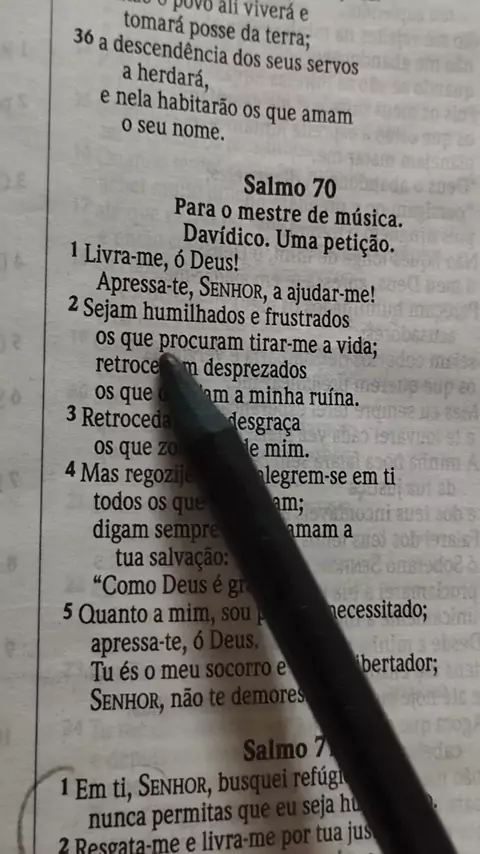 povo ali viverá e
tomará posse da terra;
36 a descendência dos seus servos
a herdará,
e nela habitarão os que amam
o seu nome.
Salmo 70
Para o mestre de música.
Davídico. Uma petição.
1 Livra-me, ó Deus!
Apressa-te, SENHOR, a ajudar-me!
2 Sejam humilhados e frustrados
os que procuram tirar-me a vida;
desprezados
os que a minha ruína.
3 desgraça
os que de mim.
4 Mas alegrem-se em ti
todos os que
digam sempre amam a
tua salvação:
“Como Deus é
5 Quanto a mim, sou necessitado;
apressa-te, ó Deus.
Tu és o meu socorro e
SENHOR, não te demores
Salmo
1 Em ti, SENHOR, busquei
nunca permitas que eu seja
2 Resgata-me e livra-me por tua